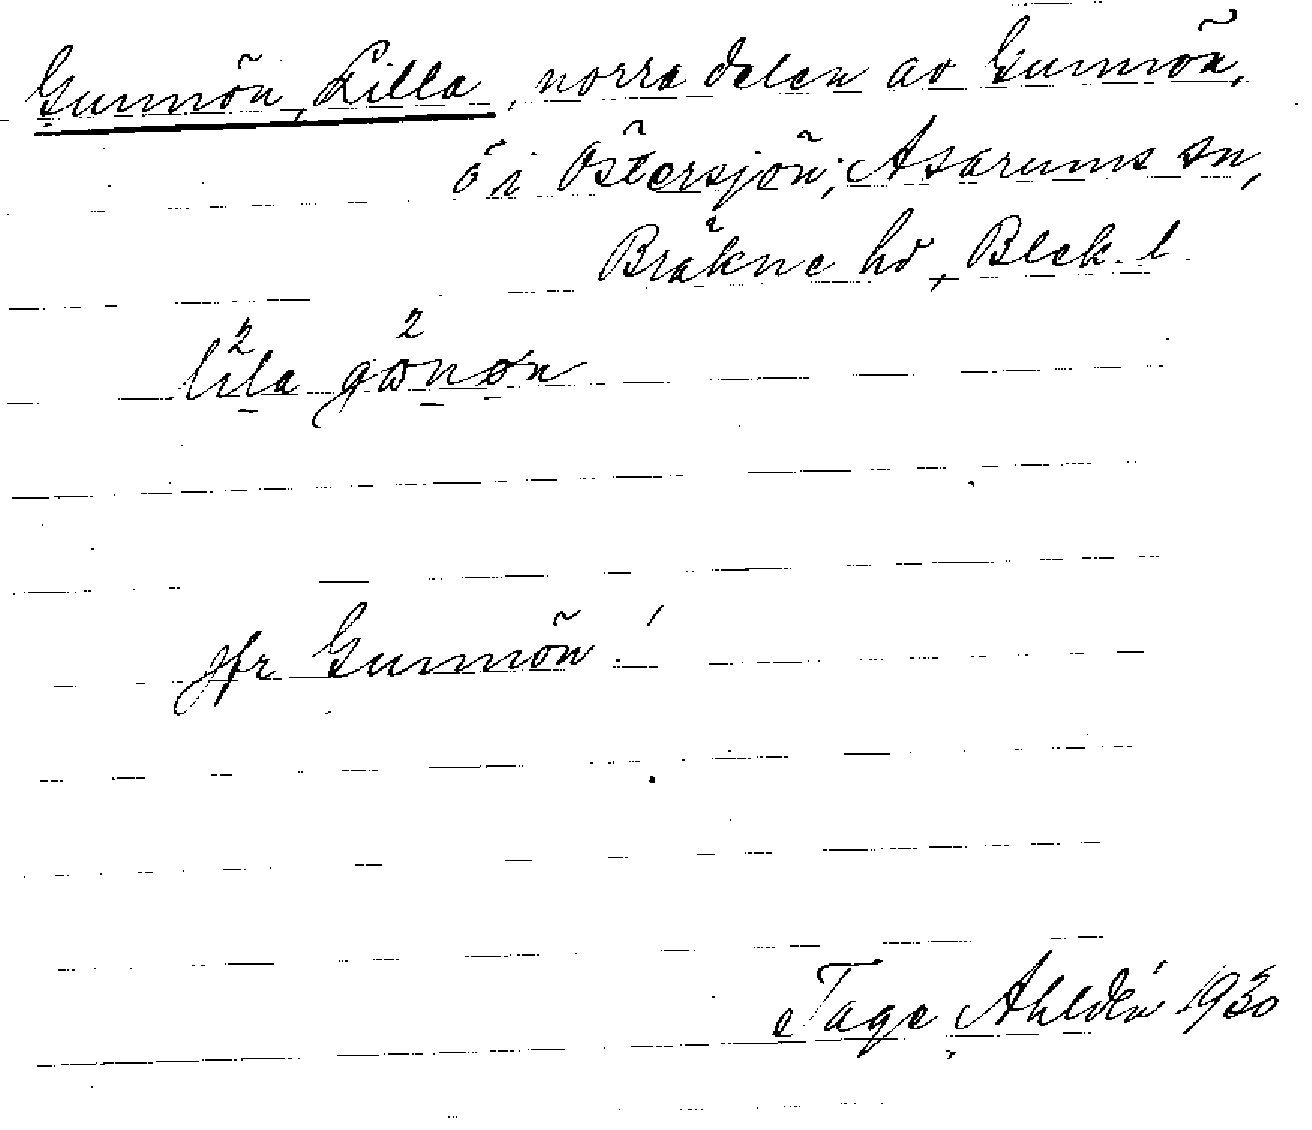 Gunnön, Lilla, norra delen av Gunnön,
ö i Östersjön; Asarums sn,
Bräkne hd, Blek. l
jfr Gunnön!
Tage Ahldén 1930